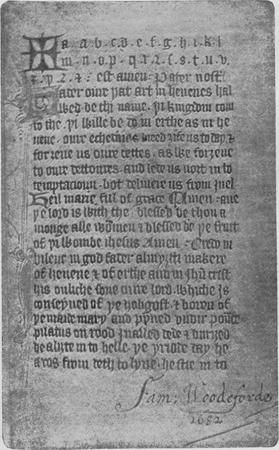 X a · a · b · c · d · e · f · g · h · i · k · l
m · n · o · p · q · r · ꝛ · s · ſ · t · u · v
& · est amen · Pater noſt
Fater oure þat art in heuenes hal
wed be thi name · þi kingdom com
to the · þi wille be do in erthe as in he
uene · oure eche day breed ȝiue us to day &
forȝeue us oure dettes · as we forȝeue
to oure dettoures · and lede us not in to
temptacioun · bot deliuere us from yuel
Heil marie ful of grace Amen · aue
þe lord is with the · blessed be thou a
monge alle wymen & blessed be þe fruit
of þi wombe ihesus Amen · Credo in
bileue in god fader almyȝti makere
of heuene & of erthe and in Jhu crist
his onliche sone oure lord · whiche is
conseyued of þe holigost & boren of
þe maide mary and pyned undir pounce
pilatus on rood ynailed dede & buried
he aliȝte in to helle · þe þridde day he
aros from deth to lyue · he stie in to
Fam: Woodeforde
1682